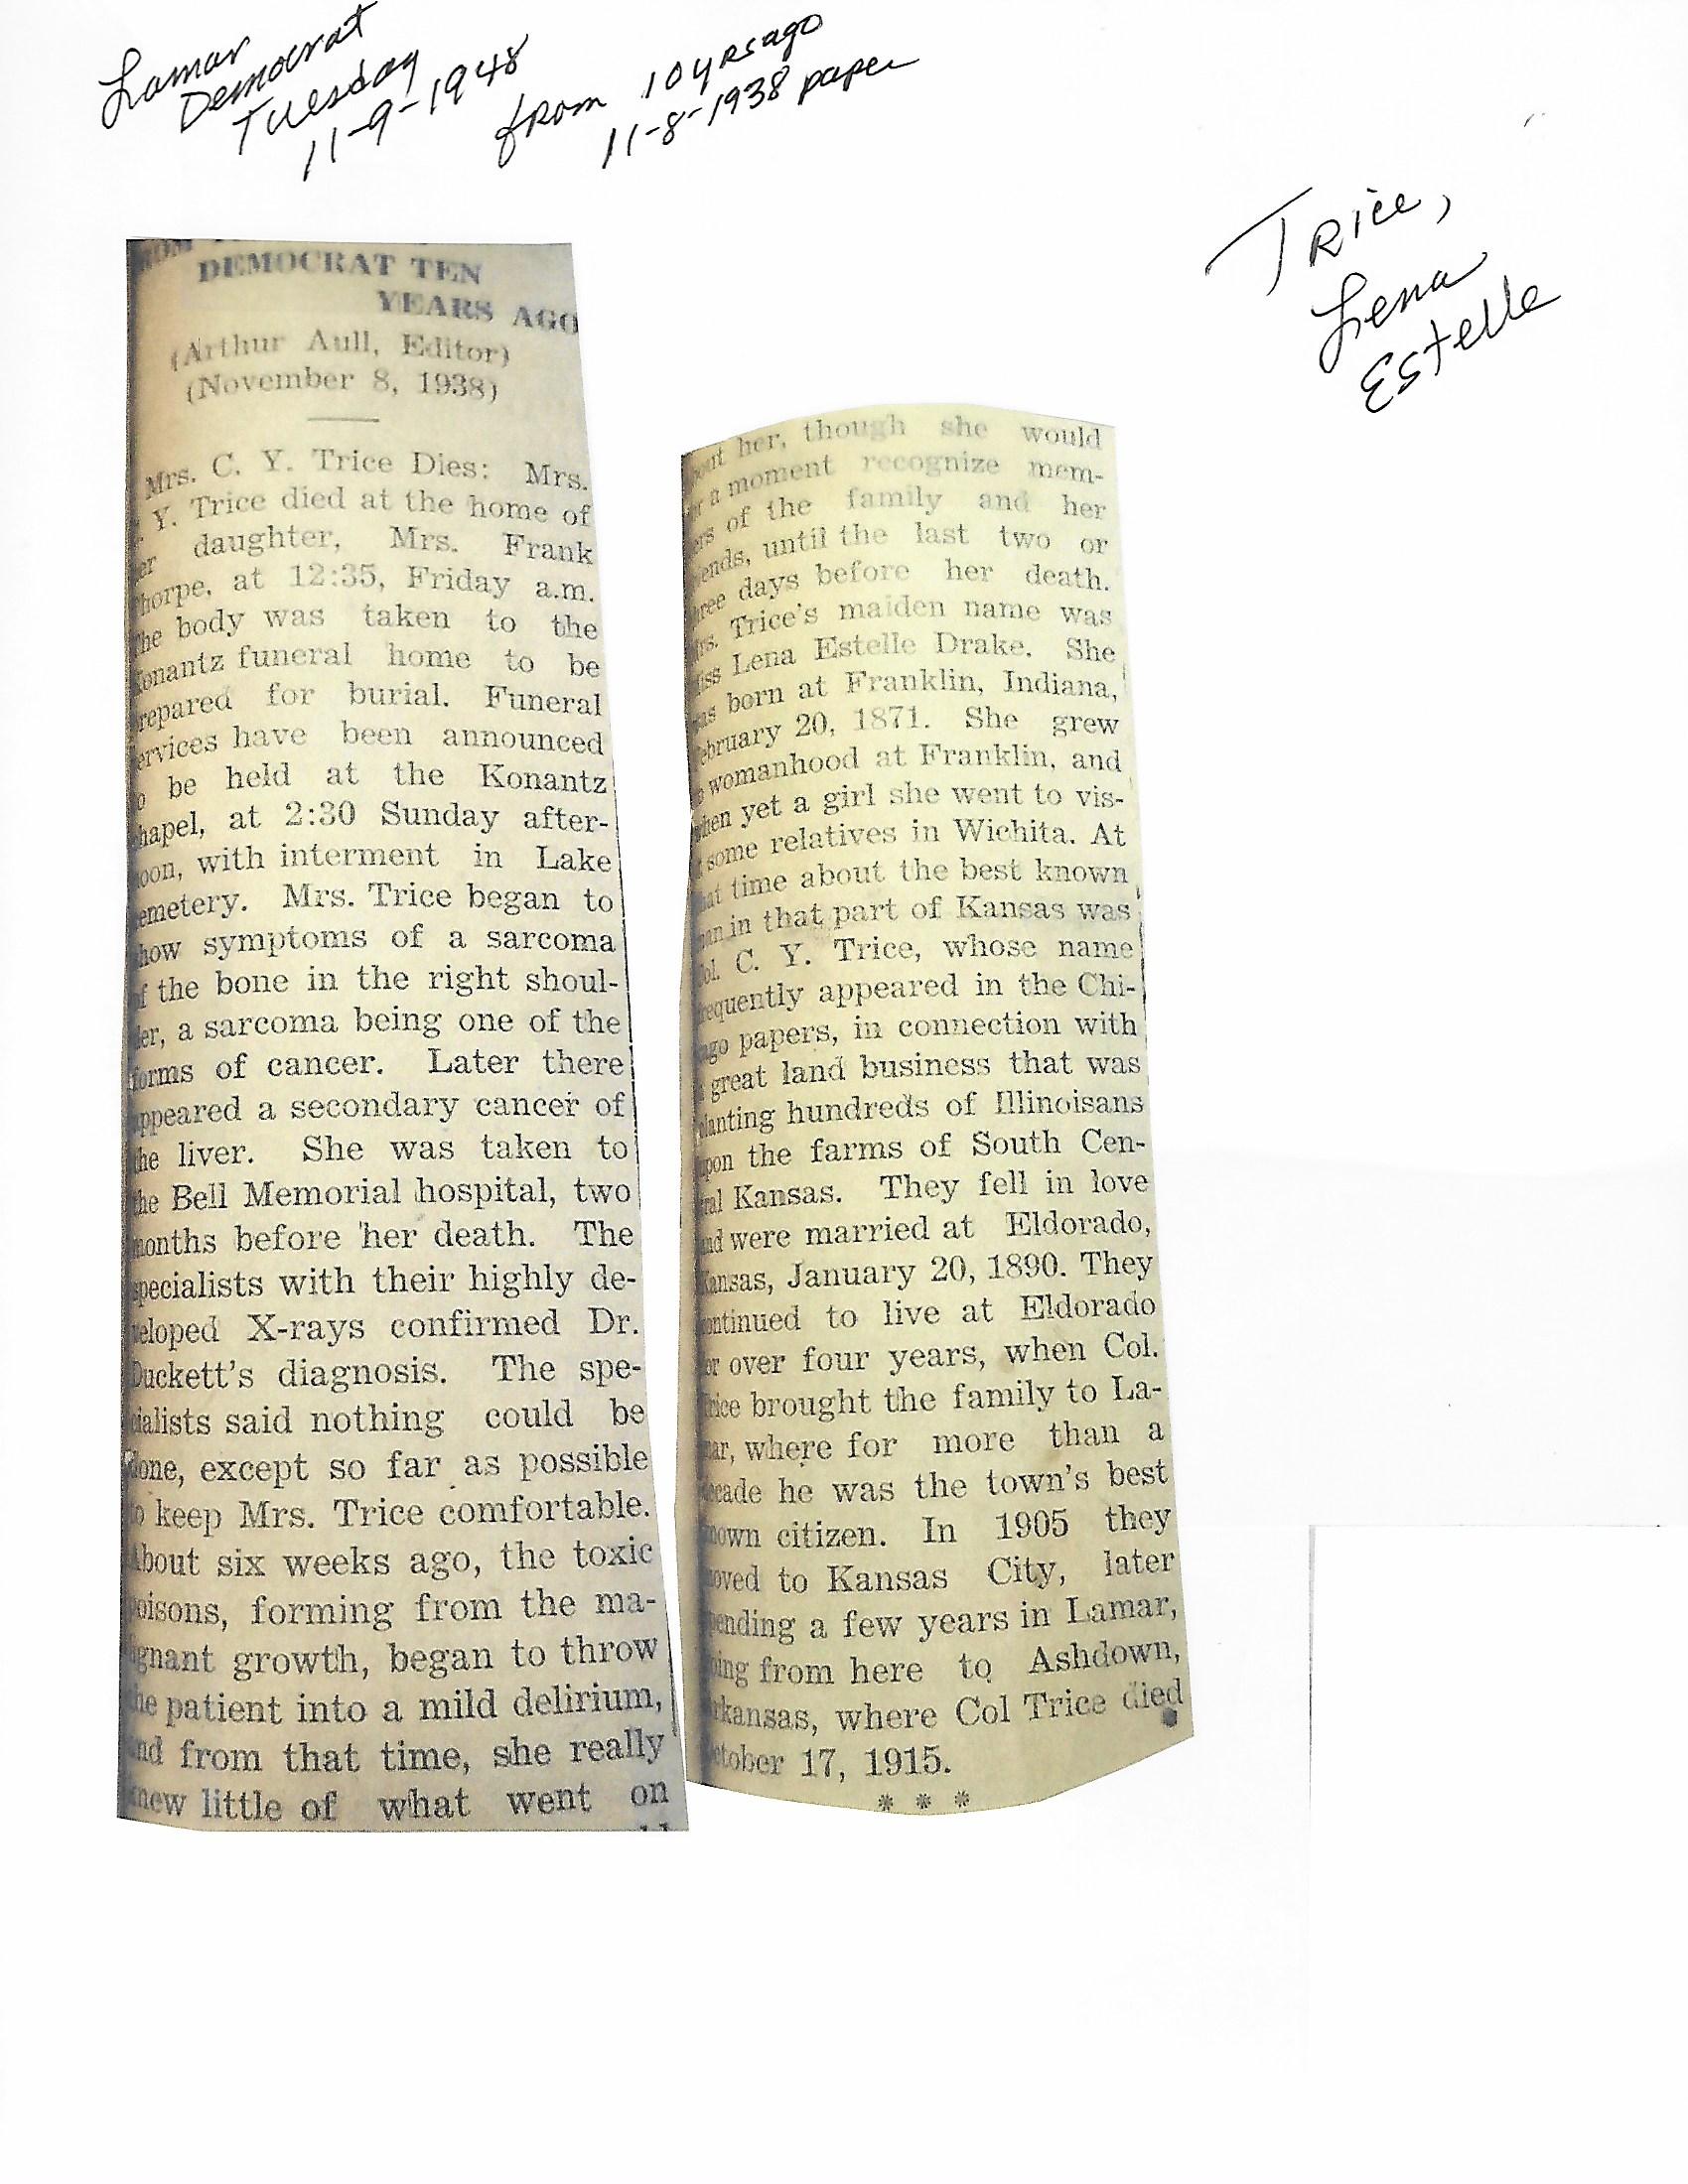 Lamar
Democrat
Tuesday
11-9-1948
from 10 yrs ago
11-8-1938 paper
Trice,
Lena
Estelle
ROM
DEMOCRAT TEN
YEARS AGO
(Arthur Aull, Editor)
(November 8, 1938)
Mrs. C. Y. Trice Dies: Mrs.
Y. Trice died at the home of
er daughter, Mrs. Frank
horpe, at 12:35, Friday a.m.
he body was taken to the
onantz funeral home to be
repared for burial. Funeral
ervices have been announced
o be held at the Konantz
hapel, at 2:30 Sunday after-
oon, with interment in Lake
emetery. Mrs. Trice began to
how symptoms of a sarcoma
f the bone in the right shoul-
er, a sarcoma being one of the
forms of cancer. Later there
ppeared a secondary cancer of
the liver. She was taken to
the Bell Memorial hospital, two
months before her death. The
specialists with their highly de-
veloped X-rays confirmed Dr.
Duckett's diagnosis. The spe-
cialists said nothing could be
done, except so far as possible
to keep Mrs. Trice comfortable.
About six weeks ago, the toxic
poisons, forming from the ma-
ignant growth, began to throw
he patient into a mild delirium,
nd from that time, she really
knew little of what went on
bout her, though she would
or a moment recognize mem-
ers of the family and her
iends, until the last two or
hree days before her death.
Mrs. Trice's maiden name was
iss Lena Estelle Drake. She
as born at Franklin, Indiana,
ebruary 20, 1871. She grew
o womanhood at Franklin, and
hen yet a girl she went to vis-
t some relatives in Wichita. At
hat time about the best known
man in that part of Kansas was
ol. C. Y. Trice, whose name
requently appeared in the Chi-
ago papers, in connection with
a great land business that was
lanting hundreds of Illinoisans
upon the farms of South Cen-
ral Kansas. They fell in love
nd were married at Eldorado,
Kansas, January 20, 1890. They
ontinued to live at Eldorado
or over four years, when Col.
rice brought the family to La-
mar, where for more than a
ecade he was the town's best
nown citizen. In 1905 they
oved to Kansas City, later
pending a few years in Lamar,
oing from here to Ashdown,
rkansas, where Col Trice died
ctober 17, 1915.
* * *